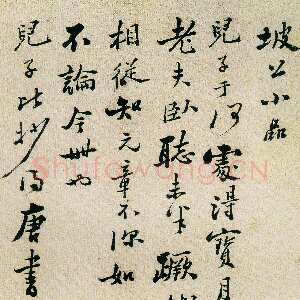 坡公小品
兒子于何處得寶月
老夫臥聽未半蹶
相從知元章不深如
不論今世也
兒子比抄得唐書